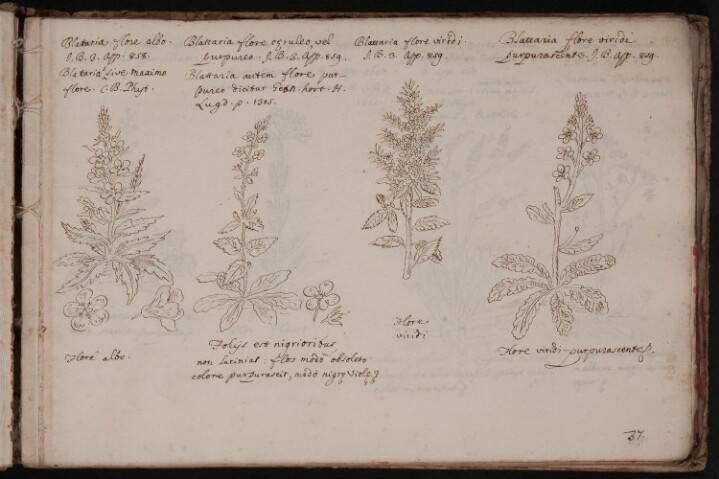 Blataria flore albo.
J.B.3. App. 858.
Blattaria sive maximo
flore. C.B. Phyt.
Blattaria flore cæruleo, vel
purpureo. J.B.3. App. 859.
Blattaria autem flore pur-
pureo dicitur hort. H.
Lugd. p. 1305.
Blattaria flore viridi.
J.B.3. App. 859.
Blattaria flore viridi
purpurascente. J.B. App. 859.
Flore albo.
Folijs est nigrioribus
non laciniat: flos modò obsoleto
colore purpurascit, modò nigr Viol
Flore
viridi
Flore viridi-purpurascente.
37.